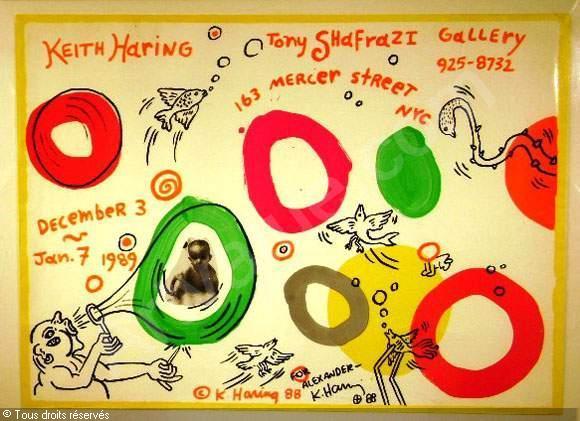 KEITH HARING
TONY SHAFRAZI GALLERY
925-8732
163 MERCER STREET
NYC
DECEMBER 3
~
JAN. 7 1989
© K. Haring 88
FOR
ALEXANDER-
K. Haring
88
© Tous droits réservés